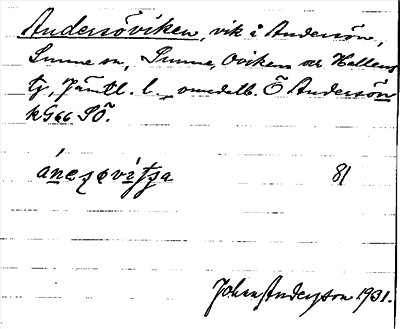 Andersöviken, vik å Andersön,
Sunne sn, Sunne, Oviken och Hallens
tg, Jämtl. l. omedelb. Ö Andersön
k G66 SÖ.
81
Johan Anderzon 1931.